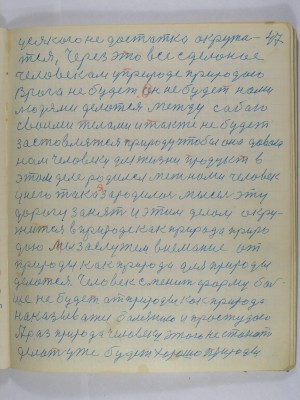 всякого недостатка окружа- 47
тся, Через это все сделоное
человекам уприроде природаю
Врага небудет Он небудет нами
людями делотся между сабою
своими телами итакже небудет
застовлятся природу чтобы она довала
нам человеку для жизни продукт в
этом деле родился меж нами человек
унего така зародилос мысел эту
дорогу занят и этим делом окру-
жится в природе как природа приро
даю Мизавлучем внемание от
природы как природа для природы
делотся Человек сменит форму бол-
ше не будет от природы как природа
наказывате болезнею и простудаю
Араз природа человеку этого не станет
делат уже будет хорошо природы